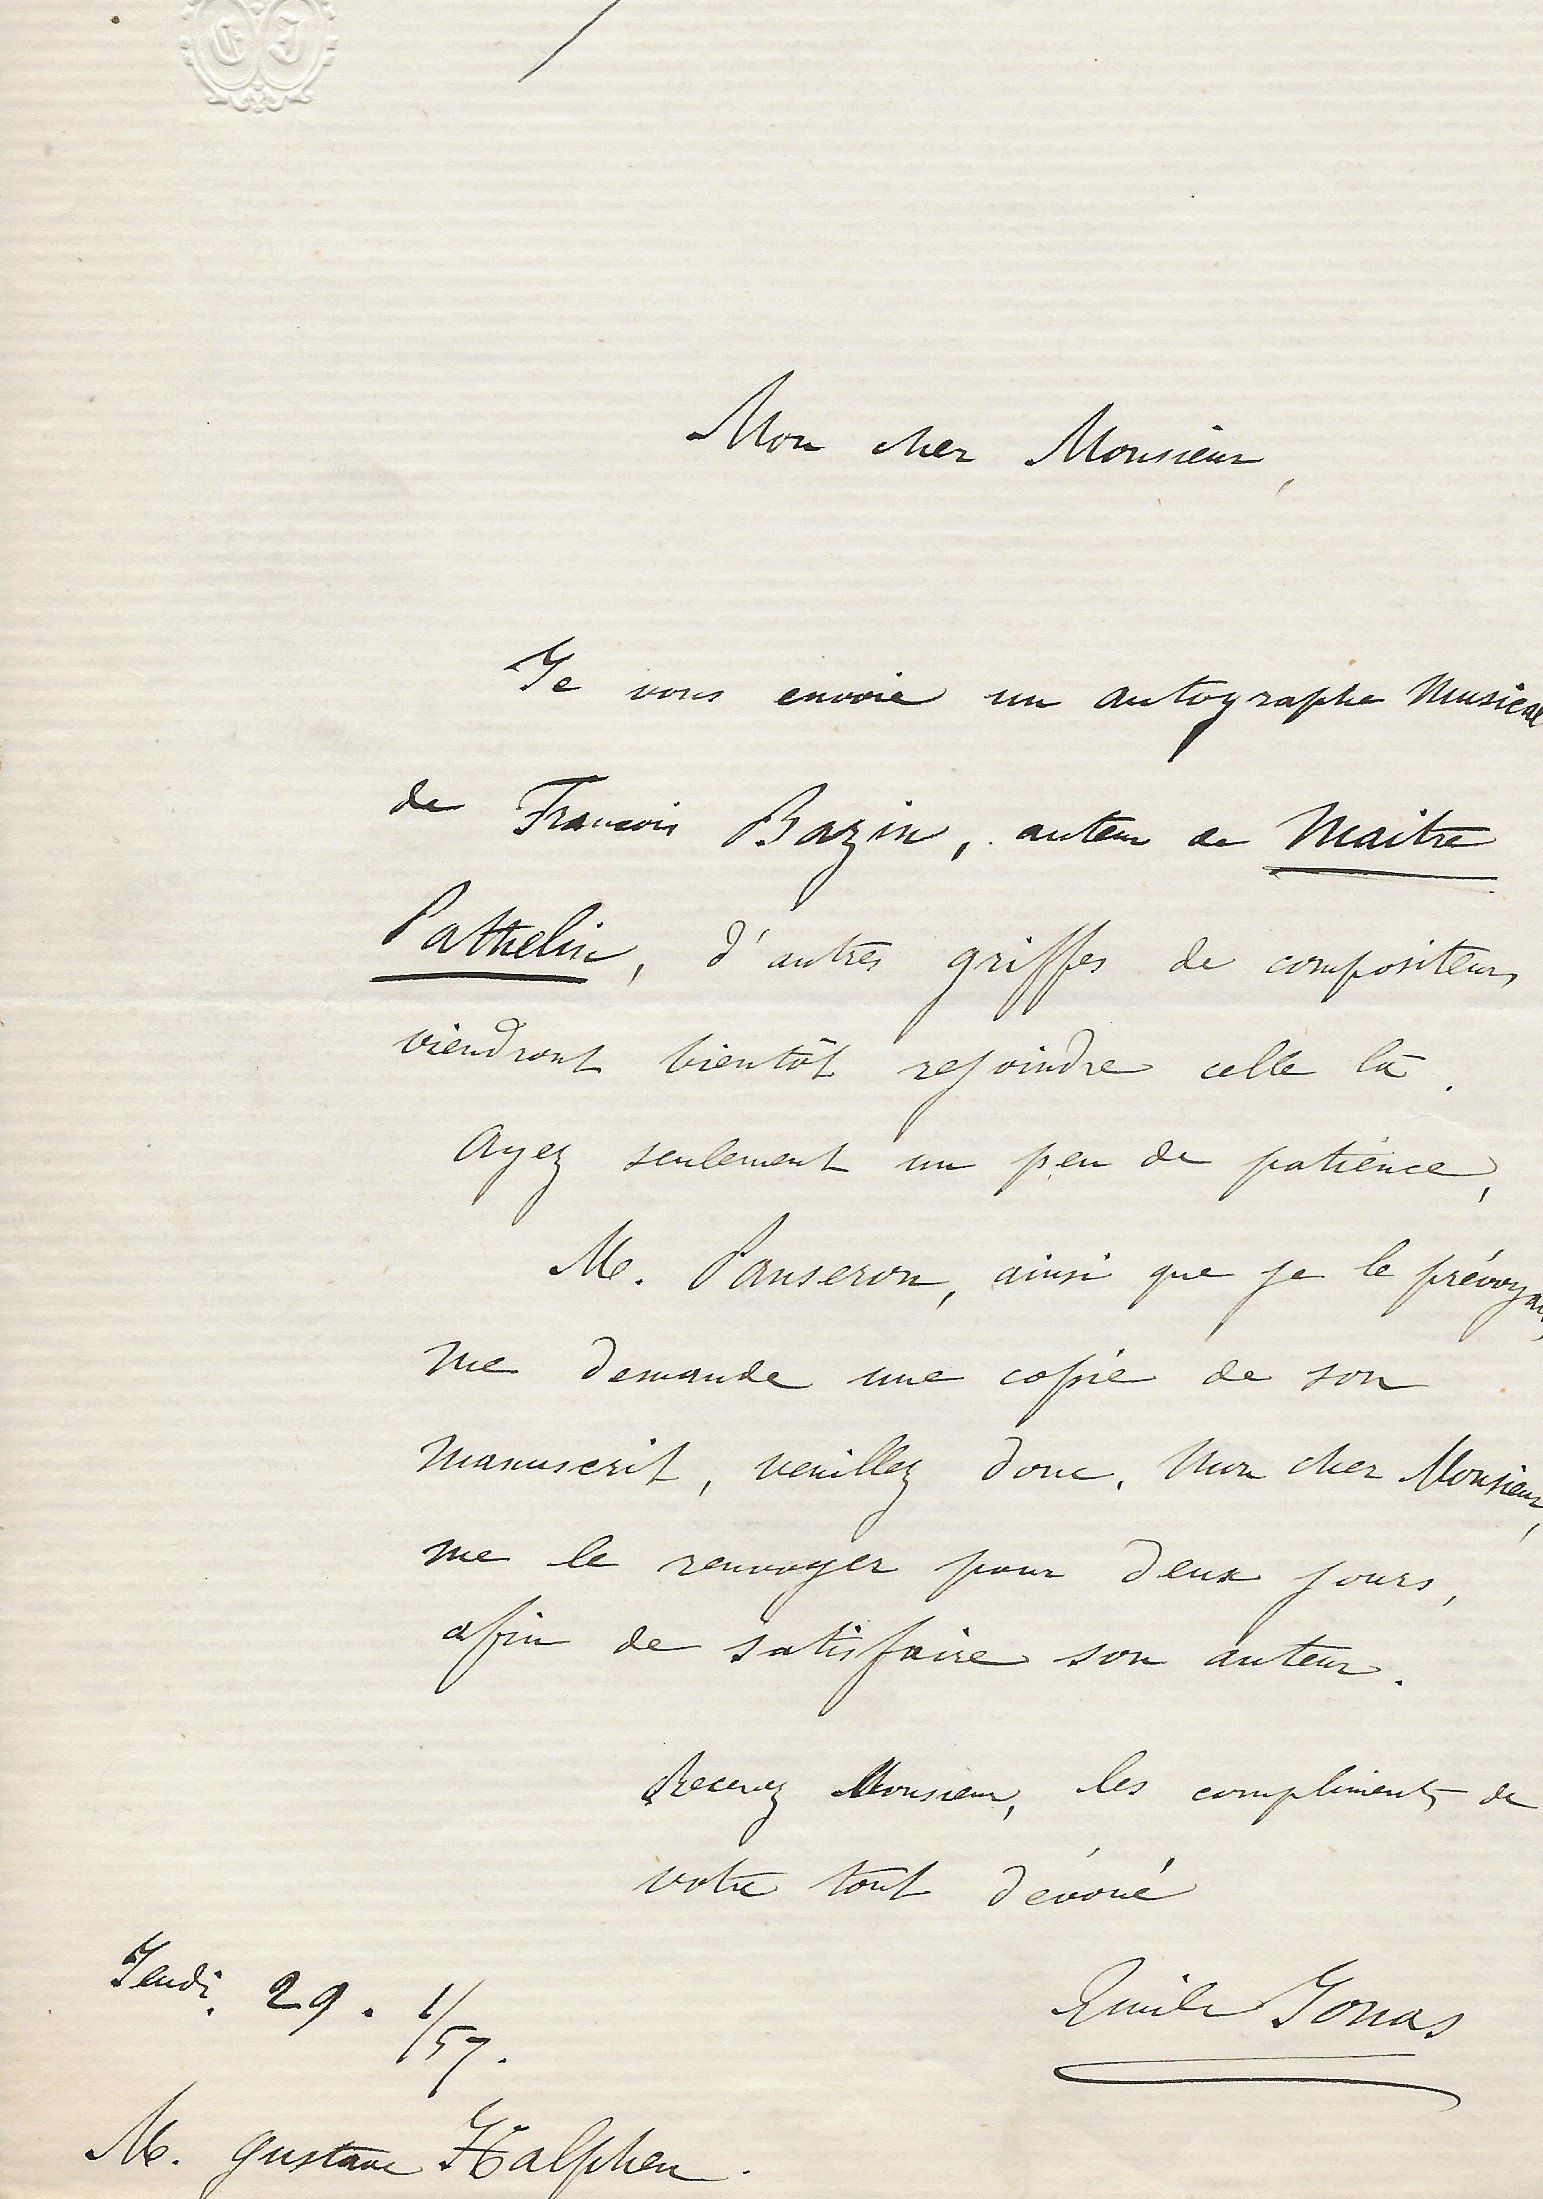 E J
Mon cher Monsieur,
Je vous envoie un autographe musical
de François Bazin, auteur de Maitre
Pathelin, d'autres griffes de compositeurs
viendront bientôt rejoindre celle là.
Ayez seulement un peu de patience,
M. Panseron, ainsi que je le prévoyais,
me demande une copie de son
manuscrit, veuillez donc, mon cher Monsieur,
me le renvoyer pour deux jours,
afin de satisfaire son auteur.
Recevez Monsieur, les compliments de
votre tout dévoué
Emile Jonas
Jeudi. 29. 1/57.
M. Gustave Halphen.